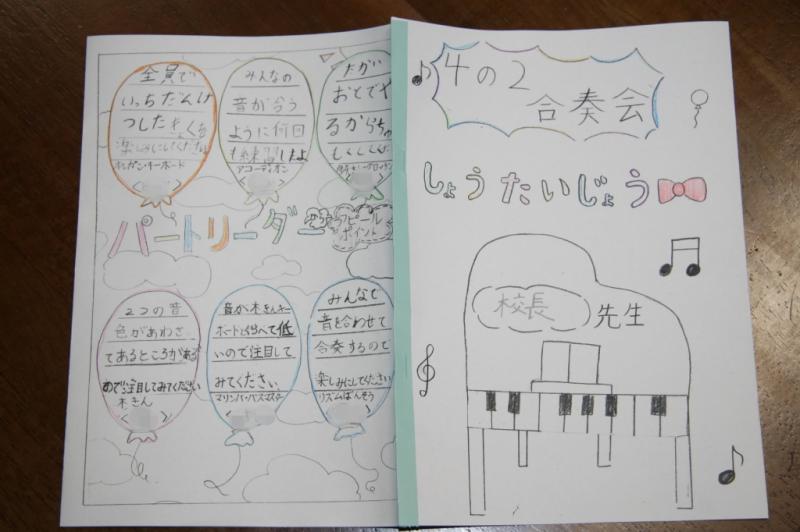 全員で
いっちだんけ
つした
楽しみにしてください
オルガン・キーボード
みんなの
音が合う
ように何日
も練習したよ
アコーディオン
たがい
おとでや
るからちゅ
もくしく
パートリーダー
アピール
ポイント
2つの音
色があわさ
てあるところがある
ので注目してみてください
木きん
音が木きんキー
ボードとくらべて低
いので注目して
みてください
マリンバ・バスマスター
みんなで
音を合わせて
合奏するので
楽しみにしてください
リズムばんそう
4の2
合奏会
しょうたいじょう
校長
先生